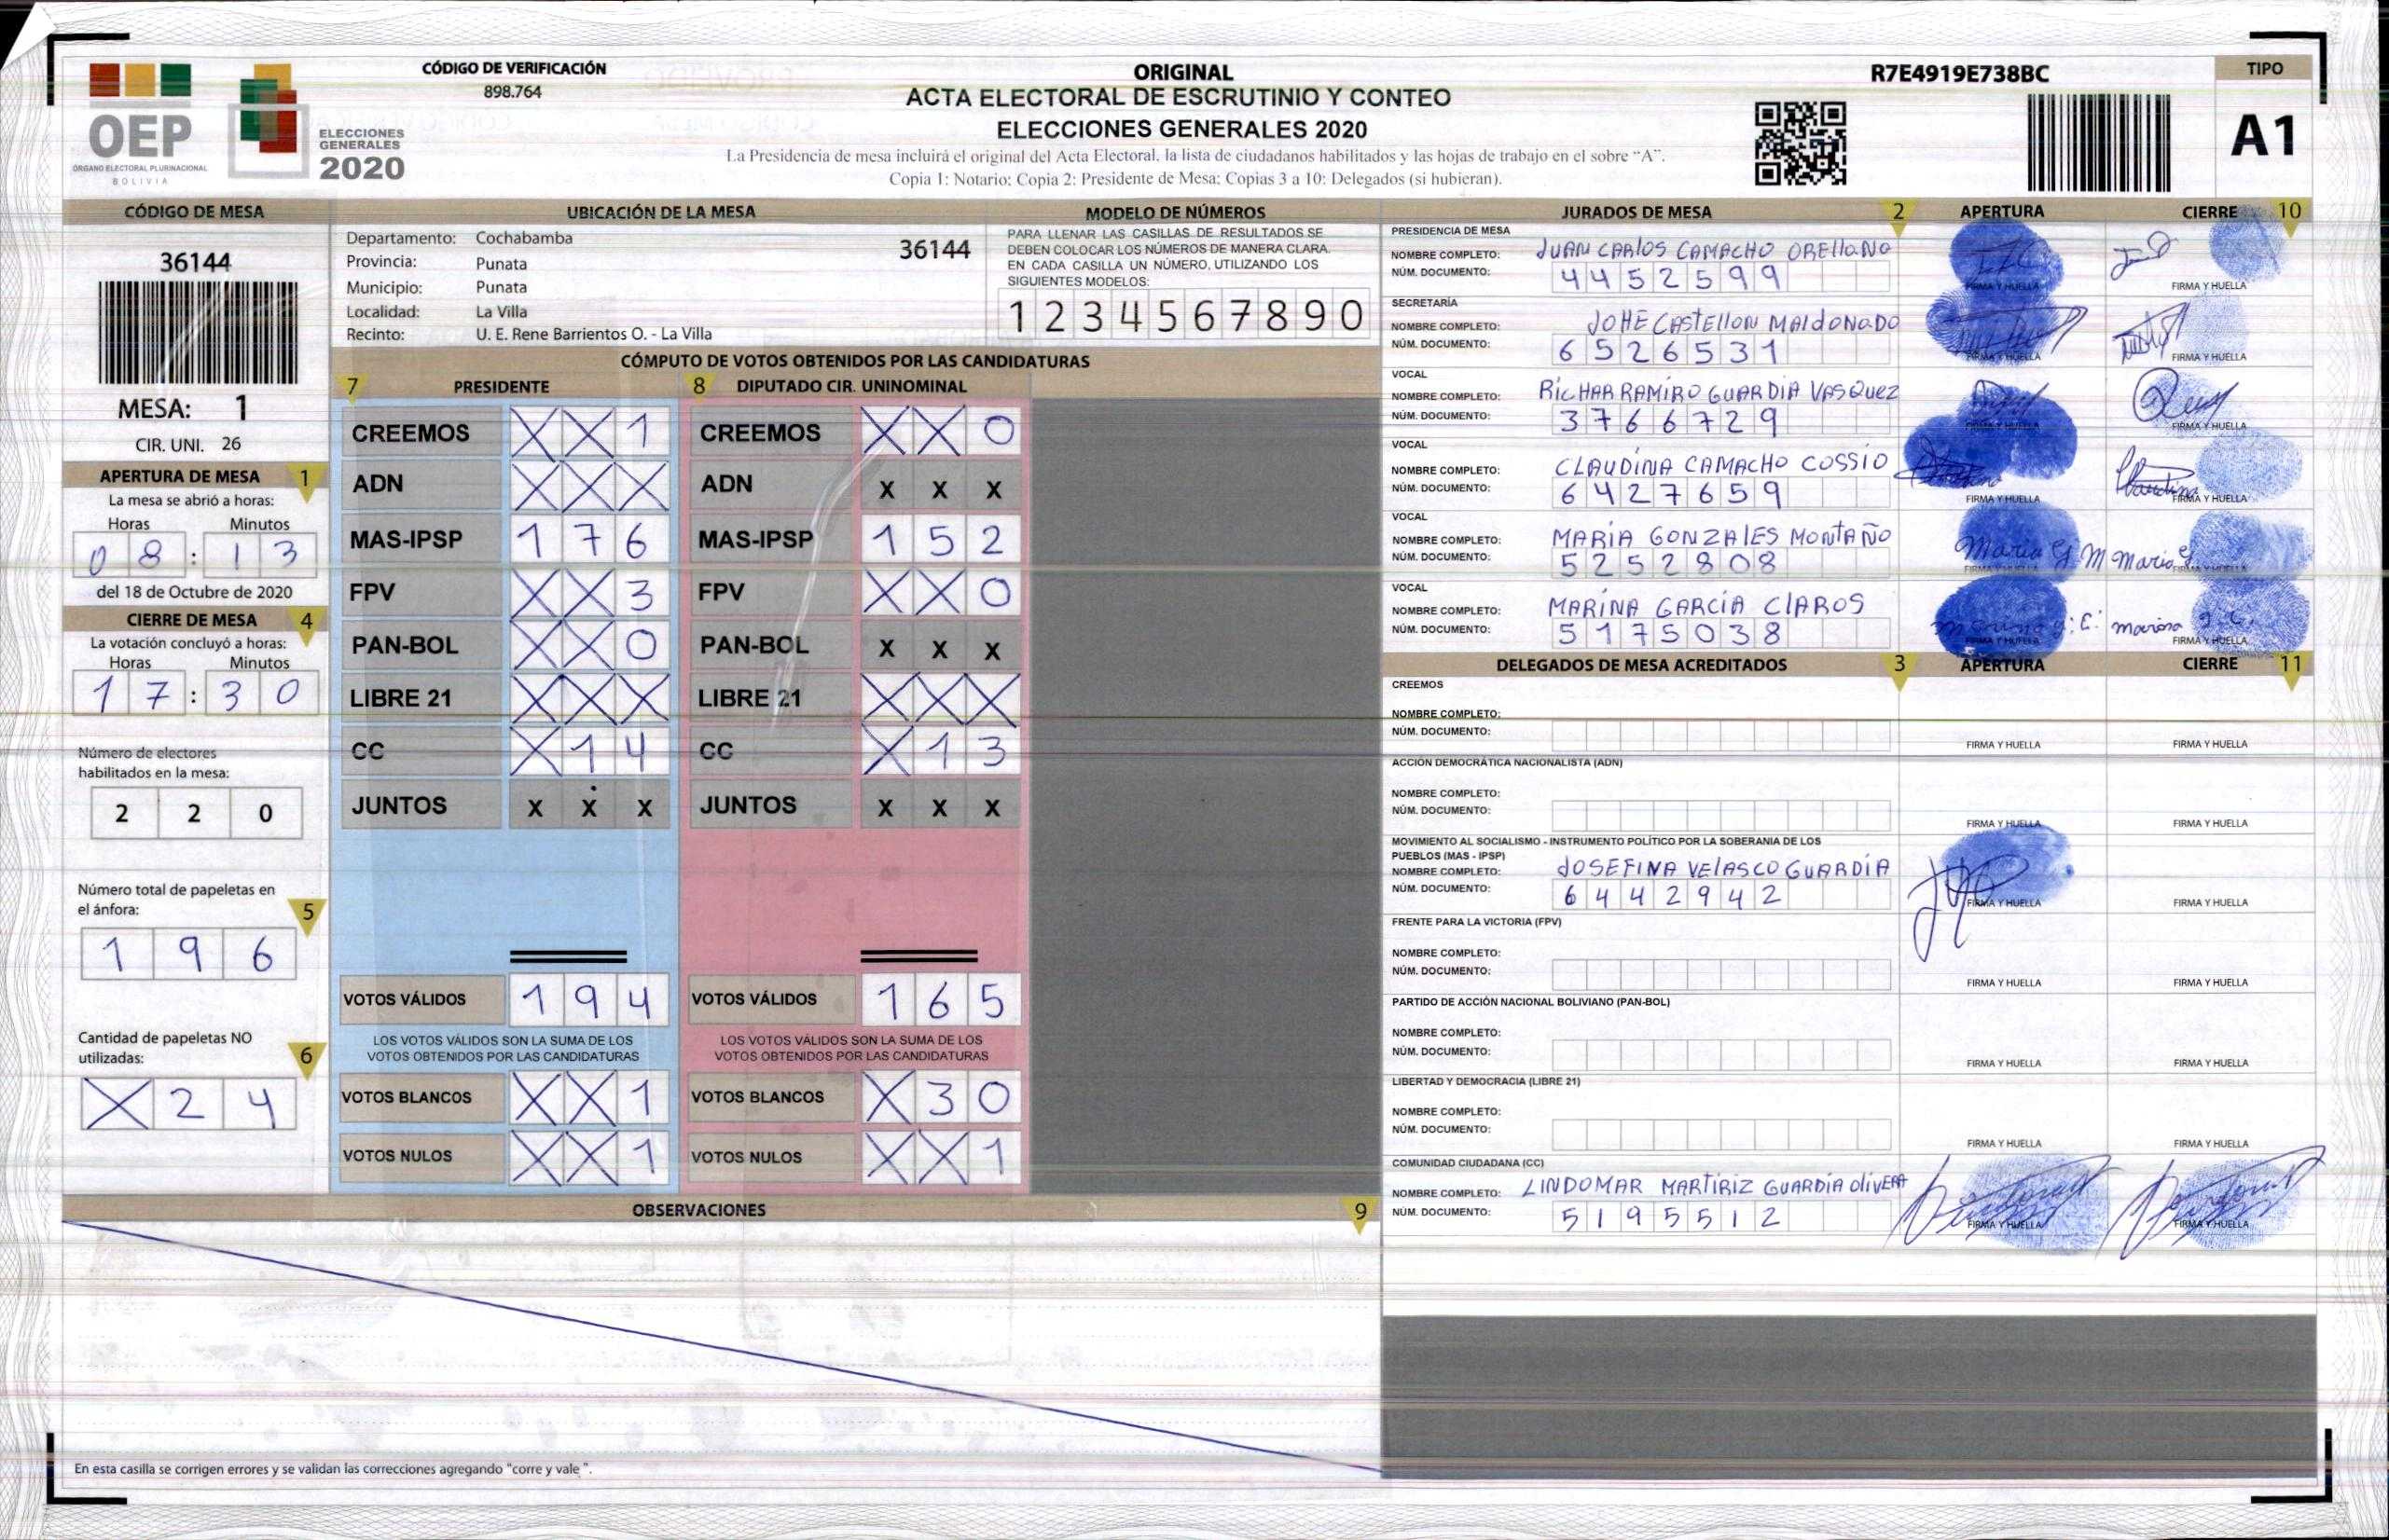 CÓDIGO DE VERIFICACIÓN
898.764
OEP
ÓRGANO ELECTORAL PLURINACIONAL
BOLIVIA
ELECCIONES
GENERALES
2020
ORIGINAL
ACTA ELECTORAL DE ESCRUTINIO Y CONTEO
ELECCIONES GENERALES 2020
La Presidencia de mesa incluirá el original del Acta Electoral, la lista de ciudadanos habilitados y las hojas de trabajo en el sobre "A".
Copia 1: Notario; Copia 2: Presidente de Mesa; Copias 3 a 10: Delegados (si hubieran).
R7E4919E738BC
TIPO
A1
CÓDIGO DE MESA
36144
MESA: 1
CIR. UNI. 26
APERTURA DE MESA 1
La mesa se abrió a horas:
Horas Minutos
08 : 13
del 18 de Octubre de 2020
CIERRE DE MESA 4
La votación concluyó a horas:
Horas Minutos
17 : 30
Número de electores
habilitados en la mesa:
2 2 0
Número total de papeletas en
el ánfora: 5
1 9 6
Cantidad de papeletas NO
utilizadas: 6
X 2 4
UBICACIÓN DE LA MESA
Departamento: Cochabamba 36144
Provincia: Punata
Municipio: Punata
Localidad: La Villa
Recinto: U. E. Rene Barrientos O. - La Villa
MODELO DE NÚMEROS
PARA LLENAR LAS CASILLAS DE RESULTADOS SE
DEBEN COLOCAR LOS NÚMEROS DE MANERA CLARA.
EN CADA CASILLA UN NÚMERO, UTILIZANDO LOS
SIGUIENTES MODELOS:
1 2 3 4 5 6 7 8 9 0
CÓMPUTO DE VOTOS OBTENIDOS POR LAS CANDIDATURAS
7 PRESIDENTE
CREEMOS X X 1
ADN X X X
MAS-IPSP 1 7 6
FPV X X 3
PAN-BOL X X 0
LIBRE 21 X X X
CC X 1 4
JUNTOS X X X
VOTOS VÁLIDOS 1 9 4
LOS VOTOS VÁLIDOS SON LA SUMA DE LOS
VOTOS OBTENIDOS POR LAS CANDIDATURAS
VOTOS BLANCOS X X 1
VOTOS NULOS X X 1
8 DIPUTADO CIR. UNINOMINAL
CREEMOS X X 0
ADN X X X
MAS-IPSP 1 5 2
FPV X X 0
PAN-BOL X X X
LIBRE 21 X X X
CC X 1 3
JUNTOS X X X
VOTOS VÁLIDOS 1 6 5
LOS VOTOS VÁLIDOS SON LA SUMA DE LOS
VOTOS OBTENIDOS POR LAS CANDIDATURAS
VOTOS BLANCOS X 3 0
VOTOS NULOS X X 1
OBSERVACIONES 9
En esta casilla se corrigen errores y se validan las correcciones agregando "corre y vale ".
JURADOS DE MESA 2 APERTURA CIERRE 10
PRESIDENCIA DE MESA
NOMBRE COMPLETO: JUAN CARLOS CAMACHO ORELLANO
NÚM. DOCUMENTO: 4452599
FIRMA Y HUELLA FIRMA Y HUELLA
SECRETARÍA
NOMBRE COMPLETO: JOHE CASTELLON MALDONADO
NÚM. DOCUMENTO: 6526531
FIRMA Y HUELLA FIRMA Y HUELLA
VOCAL
NOMBRE COMPLETO: RICHAR RAMIRO GUARDIA VASQUEZ
NÚM. DOCUMENTO: 3766729
FIRMA Y HUELLA FIRMA Y HUELLA
VOCAL
NOMBRE COMPLETO: CLAUDINA CAMACHO COSSIO
NÚM. DOCUMENTO: 6427659
FIRMA Y HUELLA FIRMA Y HUELLA
VOCAL
NOMBRE COMPLETO: MARÍA GONZALES MONTAÑO
NÚM. DOCUMENTO: 5252808
Maria G M Maria G
FIRMA Y HUELLA FIRMA Y HUELLA
VOCAL
NOMBRE COMPLETO: MARINA GARCÍA CLAROS
NÚM. DOCUMENTO: 5175038
marina g. C. marina g. C.
FIRMA Y HUELLA FIRMA Y HUELLA
DELEGADOS DE MESA ACREDITADOS 3 APERTURA CIERRE 11
CREEMOS
NOMBRE COMPLETO:
NÚM. DOCUMENTO:
FIRMA Y HUELLA FIRMA Y HUELLA
ACCIÓN DEMOCRÁTICA NACIONALISTA (ADN)
NOMBRE COMPLETO:
NÚM. DOCUMENTO:
FIRMA Y HUELLA FIRMA Y HUELLA
MOVIMIENTO AL SOCIALISMO - INSTRUMENTO POLÍTICO POR LA SOBERANIA DE LOS
PUEBLOS (MAS - IPSP)
NOMBRE COMPLETO: JOSEFINA VELASCO GUARDIA
NÚM. DOCUMENTO: 6442942
FIRMA Y HUELLA FIRMA Y HUELLA
FRENTE PARA LA VICTORIA (FPV)
NOMBRE COMPLETO:
NÚM. DOCUMENTO:
FIRMA Y HUELLA FIRMA Y HUELLA
PARTIDO DE ACCIÓN NACIONAL BOLIVIANO (PAN-BOL)
NOMBRE COMPLETO:
NÚM. DOCUMENTO:
FIRMA Y HUELLA FIRMA Y HUELLA
LIBERTAD Y DEMOCRACIA (LIBRE 21)
NOMBRE COMPLETO:
NÚM. DOCUMENTO:
FIRMA Y HUELLA FIRMA Y HUELLA
COMUNIDAD CIUDADANA (CC)
NOMBRE COMPLETO: LINDOMAR MARTIRIZ GUARDIA OLIVERA
NÚM. DOCUMENTO: 5195512
FIRMA Y HUELLA FIRMA Y HUELLA